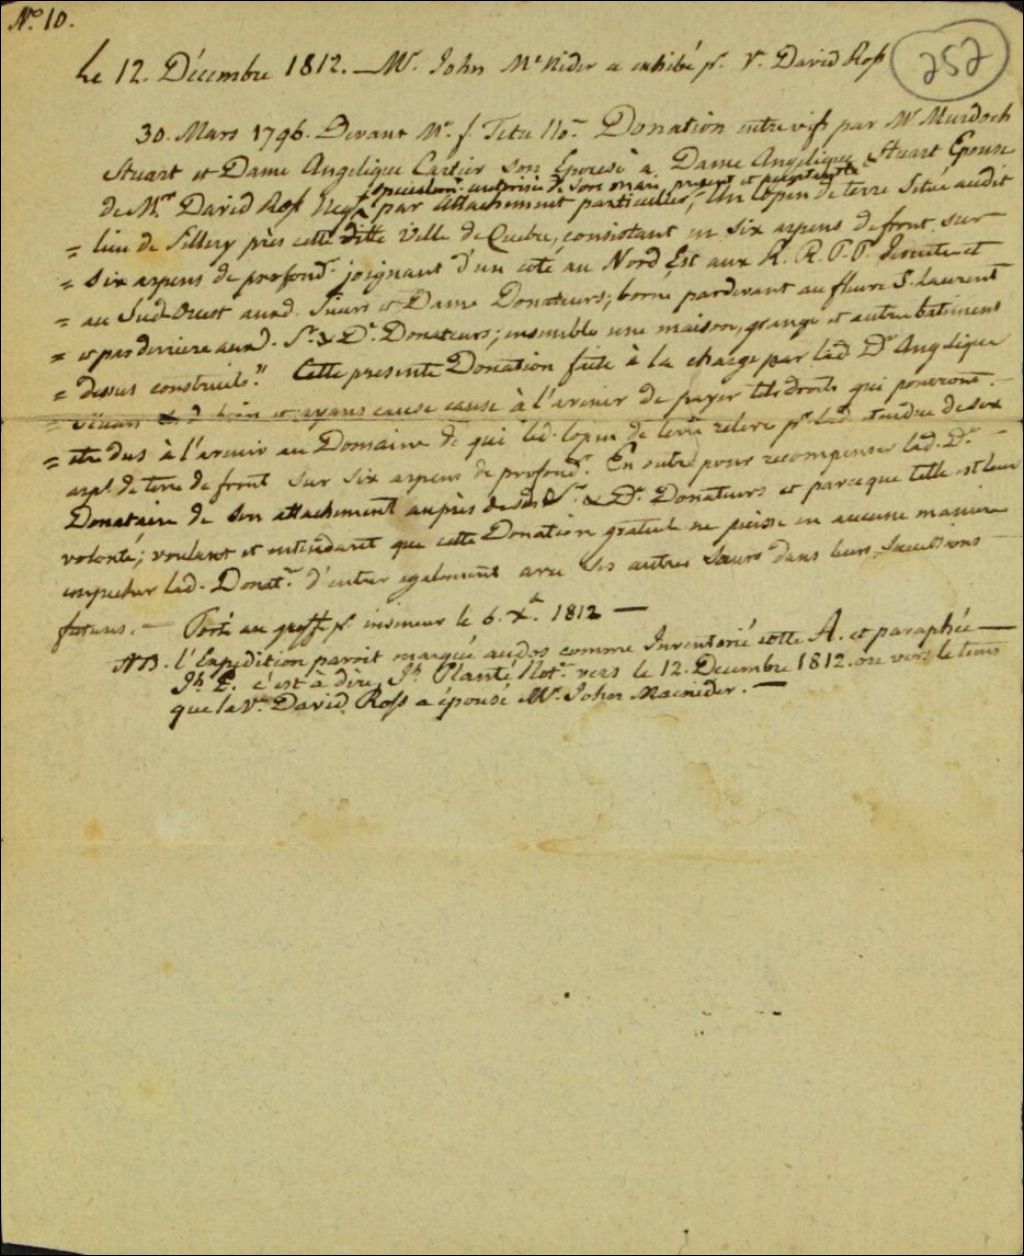 N.o 10.
252
Le 12. Décembre 1812. — Mr. John McNider a exhibé pr. Ve. David Ross
30. Mars 1796. Devant Mr. f Tetu No.re Donation entre vifs par Mr Murdoch
Stuart et Dame Angelique Cartier son Epouse à Dame Angelique Stuart Epouse
specialem.t autorisée d. sore mari present et acceptante
de Mr. David Ross Negt. par attachement particulier, "Un lopin de terre Situé audit
= lieu de Sillery près cette ditte ville de Quebec, consistant en six arpens de front sur
= six arpens de profond.r joignant d'un coté au Nord Est aux R. R. P. P. Jesuites et
= au Sud-Ouest auxd. Sieurs et Dame Donateurs; borné pardevant au fleuve S. Laurent
= et par derriere auxd. Sr. & De. Donateurs; ensemble une maison, grange et autres batimens
= dessus construits." Cette presente Donation faite à la charge par lad. De Angelique
= Stuart et ayans cause cause à l'avenir de payer tels droits qui pourront
= etre dus à l'avenir au Domaine de qui led. lopin de terre releve pr. lad. etendue de six
arp.s de terre de front sur six arpens de profond.r. En outre pour recompenser lad. De.
Donataire de son attachement auprès desd. Sr. & De. Donateurs et parce que telle est leur
volonté; voulant et entendant que cette Donation gratuite ne puisse en aucune maniere
empecher lad. Donat.re d'entrer egalement avec ses autres Sœurs dans leurs Successions
futures. — Porté au greffe pr. insinuer le 6. Xbre. 1812 —
NB. l'Expedition paroit marquée audos comme Inventorié cotte A. et paraphée —
Jh. P. c'est à dire, Jh. Planté Not.re vers le 12. Decembre 1812. ou vers le tems
que la Ve. David Ross a épousé Mr. John Macnider. —